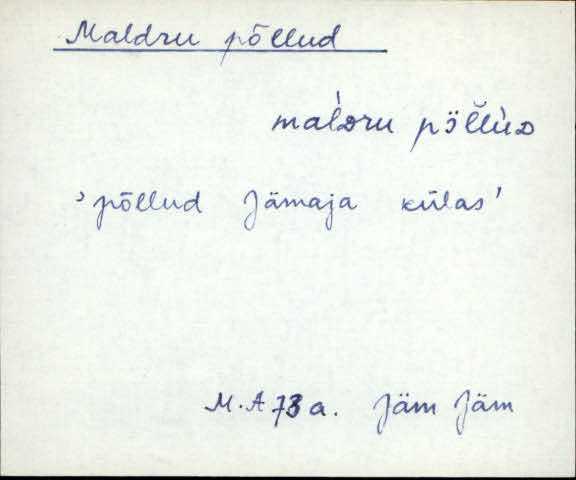 Maldru põllud
mal'dru pöl̆lùᴅ
'põllud Jämaja külas'
M.A 73 a. Jäm Jäm